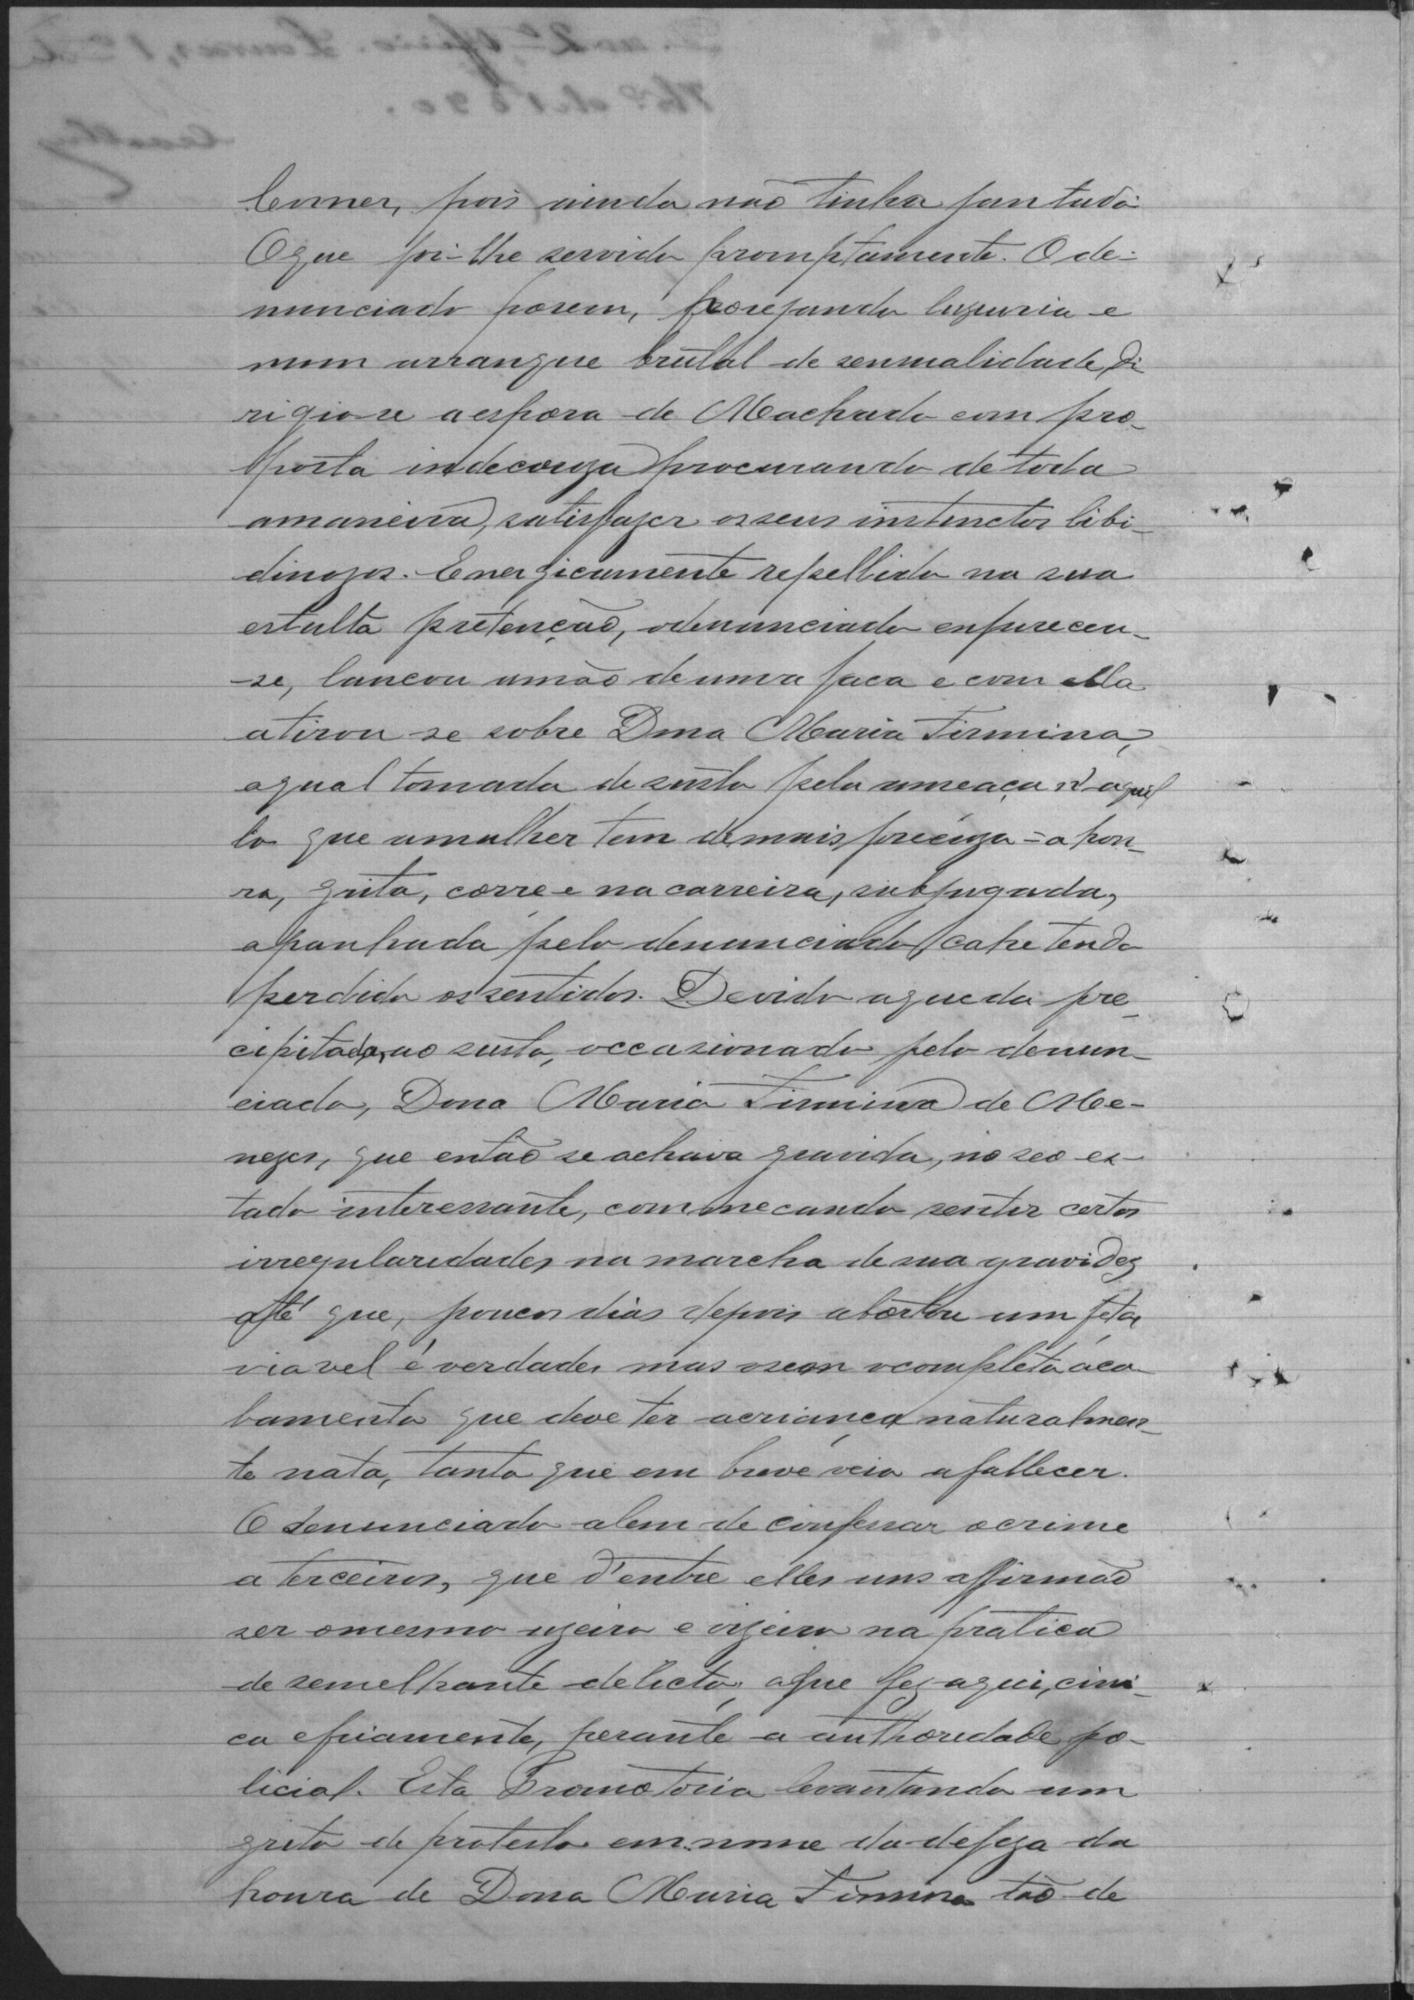 comer, pois ainda não tinha jantado.
O que foi-lhe servido promptamente. O de-
nunciado porem, porejando luxuria e
num arranque brutal de sensualidade, di
rigio-se a espoza de Machado com pro-
posta indecoroza procurando de toda
a maneira, satisfazer os seus instinctos libi-
dinozos. Energicamente repellido na sua
estulta pretenção, o denunciado enfureceu-
-se, lançou a mão de uma faca e com ella
atirou-se sobre Dona Maria Firmina,
a qual tomada de susto pela ameaça d'aquil
lo que a mulher tem de mais precioza = a hon-
ra, grita, corre e na carreira, subjugada,
apanhada pelo denunciado, cahe tendo
perdido os sentidos. Devido a queda pre-
cipitada, ao susto, occazionado pelo denun-
ciado, Dona Maria Firmina de Me-
nezes, que então se achava gravida, no seo es-
tado interessante, commecando sentir certos
irregularidades na marcha de sua gravidez
até que, poucos dias depois abortou um feto
viavel é verdade, mas sem o completo aca
bamento que deve ter a criança naturalmen-
te nata, tanto que em breve veio a fallecer.
O denunciado alem de confessar o crime
a terceiros, que d'entre elles uns affirmão
ser o mesmo uzeiro e vizeiro na pratica
de semelhante delicto, o que fez aqui, cini-
ca e friamente, perante a authoridade po-
licial. Esta Promotoria levantando um
grito de protesto em nome da defeza da
honra de Dona Maria Firmina tão de